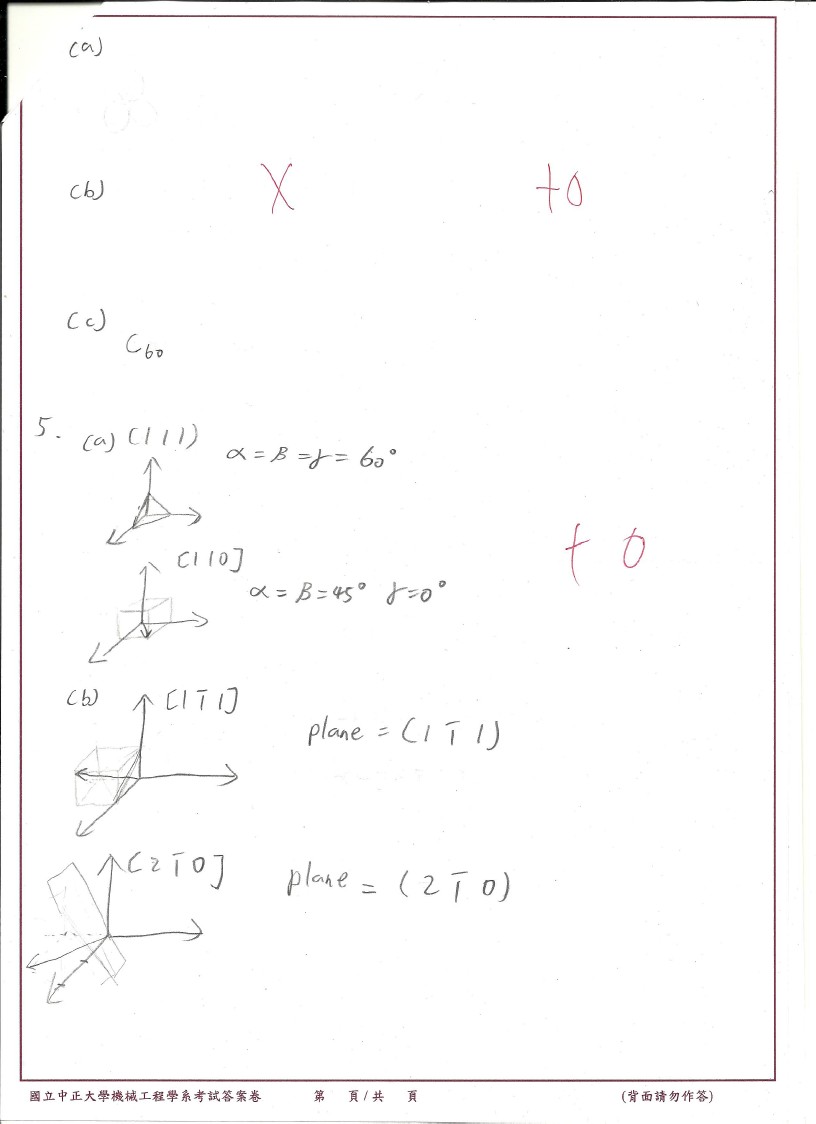 (a)
(b) X +0
(c)
C60
5. (a) (111) α = β = γ = 60°
+0
[110] α = β = 45° γ = 0°
(b) [11̅1] plane = (11̅1)
[21̅0] plane = (21̅0)
國立中正大學機械工程學系考試答案卷 第 頁/共 頁 (背面請勿作答)